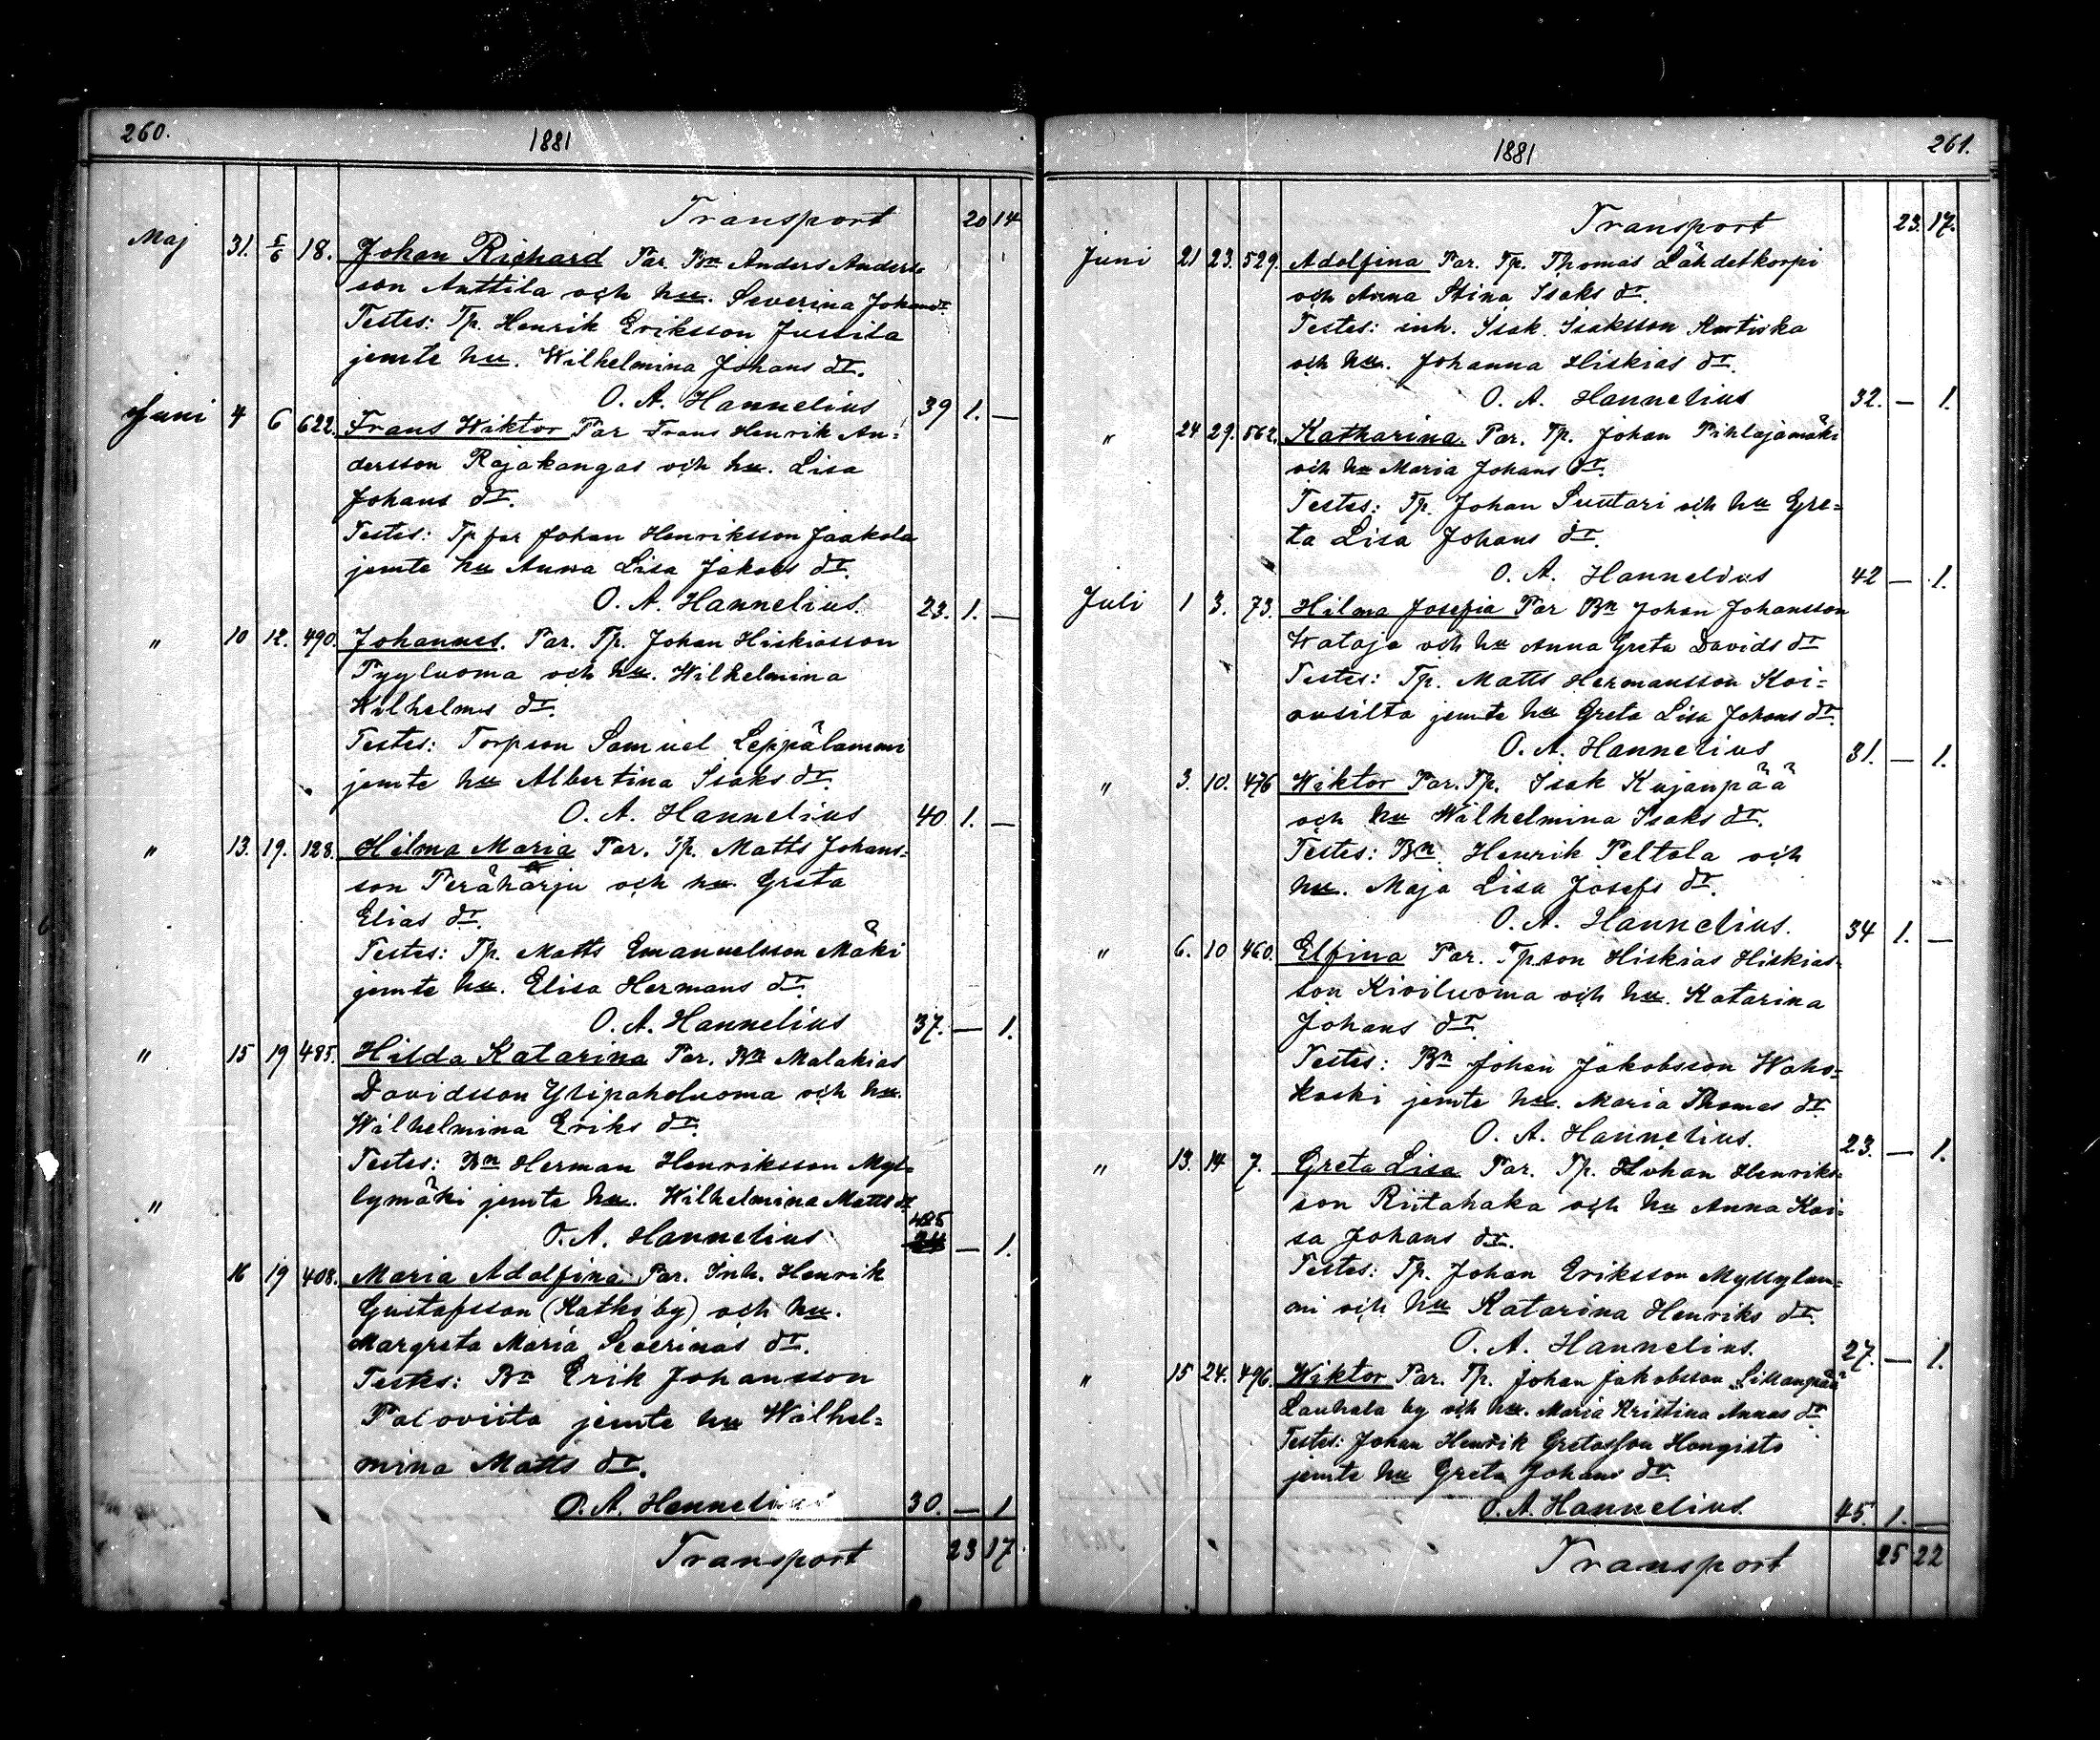 260.
1881
Transport 20 14
Maj 31. 5/6 18. Johan Richard Par. Bn Anders Anders-
son Anttila och hu. Severina Johans dr.
Testes: Tp. Henrik Eriksson Jussila
jemte hu. Wilhelmina Johans dr.
O. A. Hannelius 39 1. —
Juni 4 6 622. Frans Wiktor Par Frans Henrik An-
dersson Rajakangas och hu. Lisa
Johans dr.
Testes: Tp far Johan Henriksson Jaakola
jemte hu Anna Lisa Jakobs dr.
O. A. Hannelius. 23. 1. —
" 10 12. 490. Johannes. Par. Tp. Johan Hiskiasson
Tyyluoma och hu. Wilhelmina
Wilhelms dr.
Testes: Torpson Samuel Leppälammi
jemte hu Albertina Isaks dr.
O. A. Hannelius 40 1. —
" 13. 19. 128. Hilma Maria Par. Tp. Matts Johans-
son Peräharju och hu. Greta
Elias dr.
Testes: Tp. Matts Emanuelsson Mäki
jemte hu. Elisa Hermans dr.
O. A. Hannelius 37. — 1.
" 15 19 485. Hilda Katarina Par. Bn Malakias
Davidsson Ylipaholuoma och hu.
Wilhelmina Eriks dr.
Testes: Bn Herman Henriksson Myl-
lymäki jemte hu. Wilhelmina Matts dr
O. A. Hannelius 485 — 1.
" 16 19 408. Maria Adolfina Par. Inh. Henrik
Gustafsson (Koski by) och hu.
Margreta Maria Severinas dr.
Testes: Bn Erik Johansson
Paloviita jemte hu Wilhel-
mina Matts dr.
O. A. Hannelius 30. — 1
Transport 23 17
261.
1881
Transport 23. 17.
Juni 21 23. 529. Adolfina Par. Tp. Thomas Lähdetkorpi
och Anna Stina Isaks dr.
Testes: inh. Isak Isaksson
och hu. Johanna Hiskias dr.
O. A. Hannelius 32. — 1.
" 24 29. 562. Katharina. Par. Tp. Johan Pihlajamäki
och hu Maria Johans dr.
Testes: Tp. Johan Suutari och hu Gre-
ta Lisa Johans dr.
O. A. Hannelius 42 — 1.
Juli 1 3. 73. Hilma Josefia Par Bn Johan Johansson
Wataja och hu Anna Greta Davids dr
Testes: Tp. Matts Hermansson Koi-
vusilta jemte hu Greta Lisa Johans dr.
O. A. Hannelius 31. — 1.
" 3. 10. 476 Wiktor Par. Tp. Isak Kujanpää
och hu Wilhelmina Isaks dr.
Testes: Bn. Henrik Peltola och
hu. Maja Lisa Josefs dr.
O. A. Hannelius. 34 1. —
" 6. 10 460. Elfina Par. Tpson Hiskias Hiskias-
son Kiviluoma och hu. Katarina
Johans dr.
Testes: Bn Johan Jakobsson Waho-
koski jemte hu. Maria Thomas dr.
O. A. Hannelius. 23. — 1.
" 13. 14 7. Greta Lisa Par. Tp. Johan Henriks-
son Riitahaka och hu Anna Kai-
sa Johans dr.
Testes: Tp. Johan Eriksson Myllylam-
mi och hu Katarina Henriks dr.
O. A. Hannelius. 27. — 1.
" 15 24. 496. Wiktor Par. Tp. Johan Jakobsson Sillanpää
Lauhala by och hu. Maria Kristina Annas dr
Testes: Johan Henrik Gretasson Hongisto
jemte hu Greta Johans dr.
O. A. Hannelius. 45. 1. —
Transport 25 22